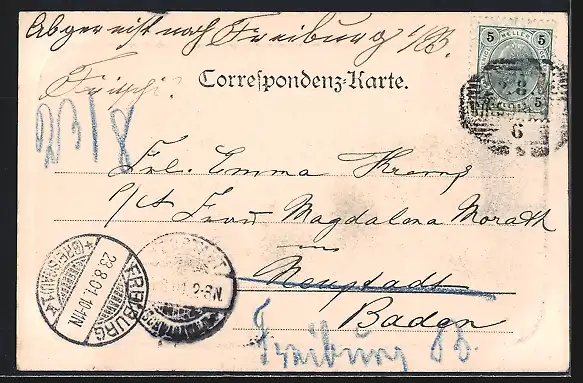 Abgereist nach Freiburg i/B.
5 HELLER 5
Fritschi
Correspondenz-Karte.
5
23/8
6
Frl. Emma
p/A Frau Magdalena Morath
in
Neustadt
Baden
Freiburg i.B.
FREIBURG
23.8.01.10-11N.
* (BREISGAU) 1. *
2-3N.